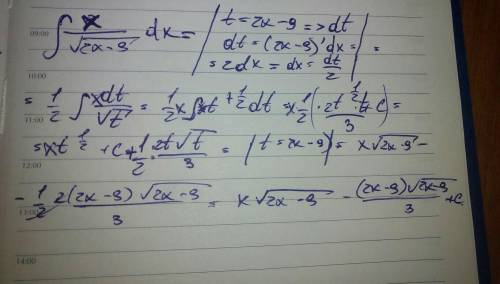 ∫ x/√(2x-9) dx = | t = 2x-9 => dt
09:00
dt = (2x-9)' dx = | =
= 2dx = dx = dt/2
10:00
= 1/2 ∫ xdt/√t = 1/2 x ∫ t^(+1/2) dt = x 1/2 ( · 2t^(1/2) · t/3 + C) =
11:00
= xt^(1/2) + C + 1/2 · 2t√t/3 = | t = 2x-9 | = x√(2x-9) -
12:00
- 1/2 2(2x-9)√(2x-9)/3 = x√(2x-9) - (2x-9)√(2x-9)/3 + C
13:00
14:00